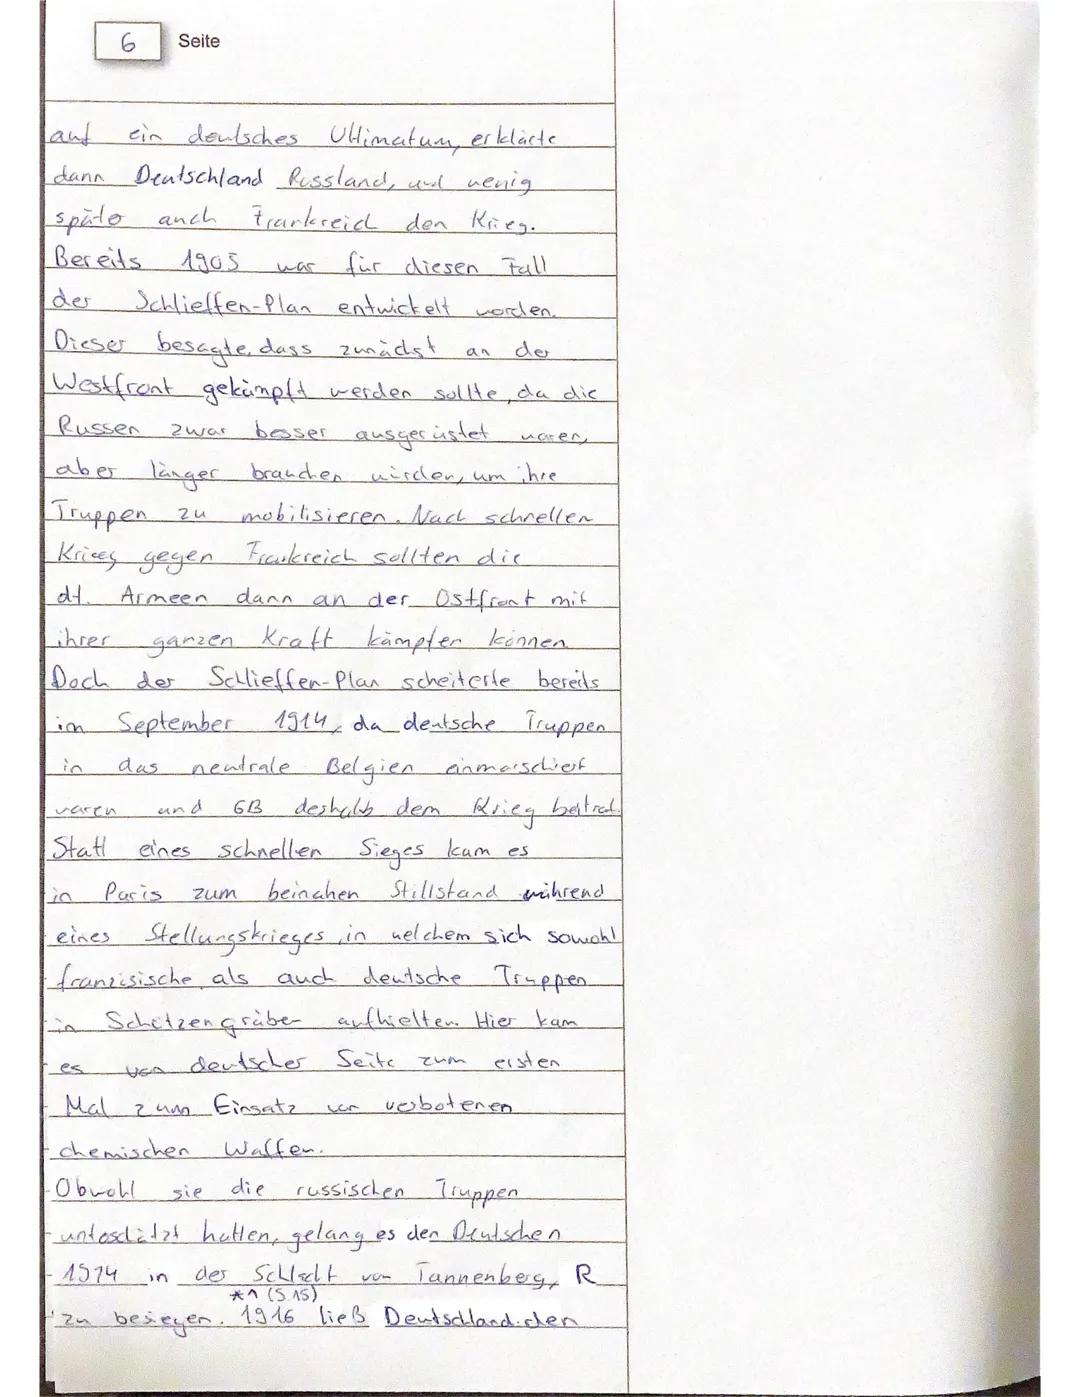 6 Seite
auf ein deutsches Ultimatum, erklärte
dann Deutschland Russland, und wenig
später auch Frankreich den Krieg.
Bereits 1905 war für diesen Fall
der Schlieffen-Plan entwickelt worden.
Dieser besagte, dass zunächst an der
Westfront gekämpft werden sollte, da die
Russen zwar besser ausgerüstet waren,
aber länger brauchen würden, um ihre
Truppen zu mobilisieren. Nach schnellen
Krieg gegen Frankreich sollten die
dt. Armeen dann an der Ostfront mit
ihrer ganzen Kraft kämpfen können.
Doch der Schlieffen-Plan scheiterte bereits
im September 1914, da deutsche Truppen
in das neutrale Belgien einmarschiert
waren und GB deshalb dem Krieg beitrat.
Statt eines schnellen Sieges kam es
in Paris zum beinahen Stillstand während
eines Stellungskrieges, in welchem sich sowohl
französische, als auch deutsche Truppen
in Schützengräben aufhielten. Hier kam
es von deutscher Seite zum ersten
Mal zum Einsatz von verbotenen
chemischen Waffen.
Obwohl sie die russischen Truppen
unterschätzt hatten, gelang es den Deutschen
1914 in der Schlacht von Tannenberg, R
*1 (S.15)
zu besiegen. 1916 ließ Deutschland den